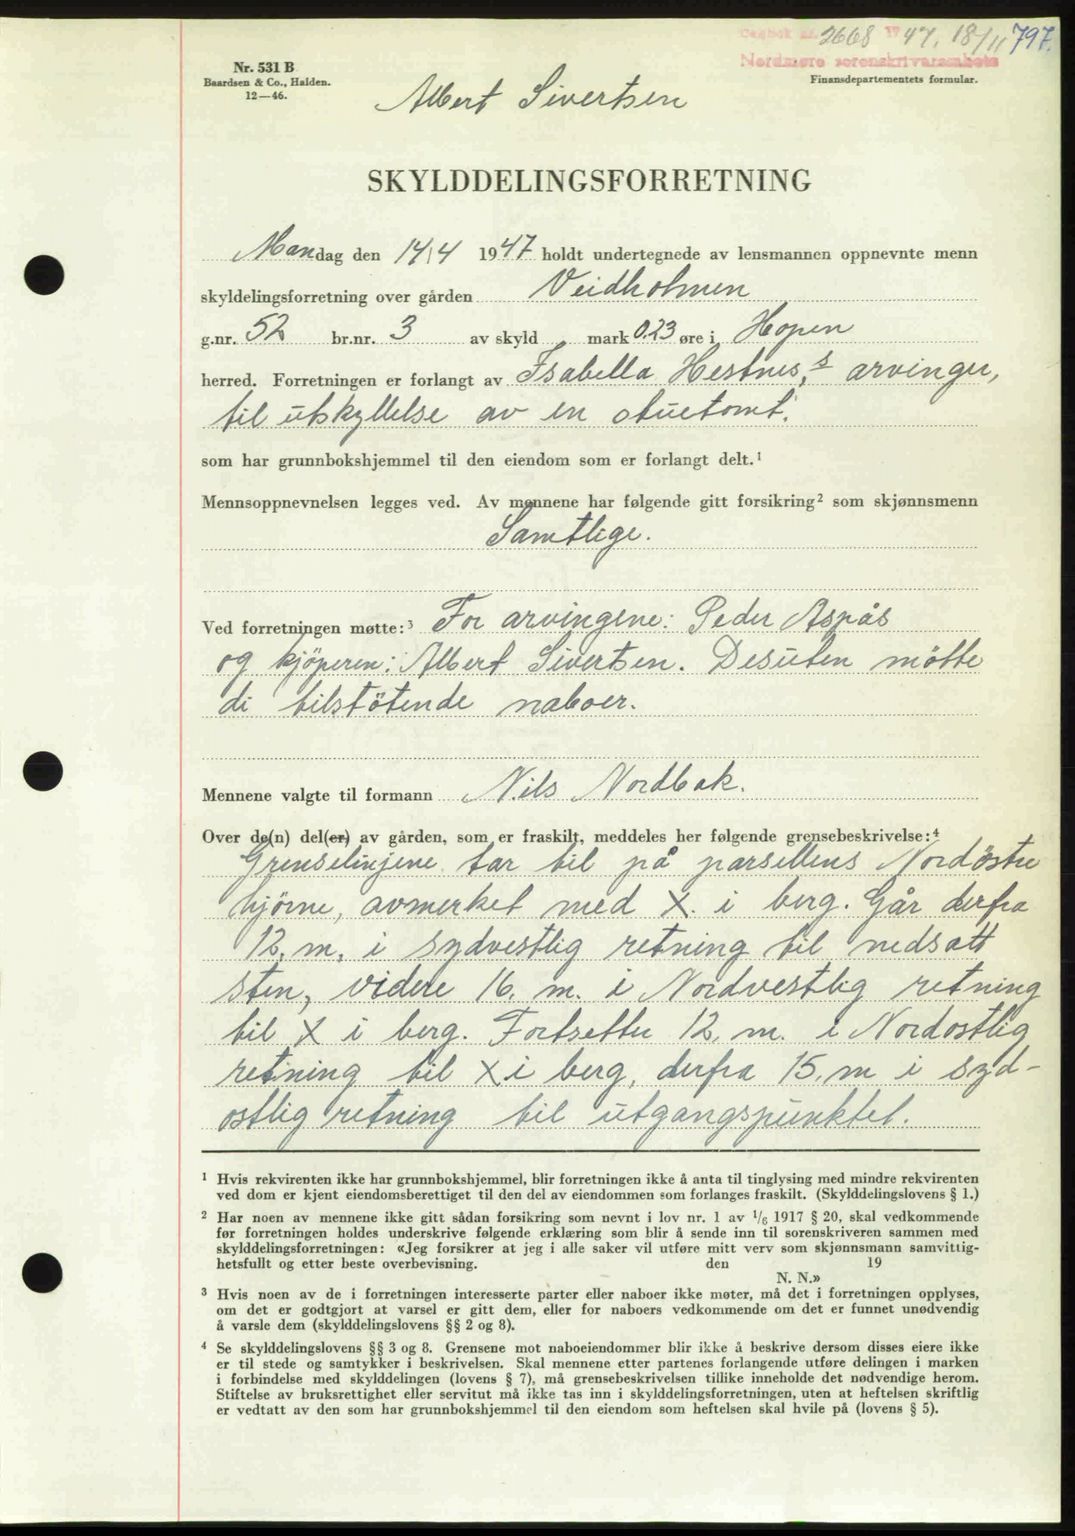 Dagbok nr. 2668 1947. 18/11 797.
Nordmøre sorenskriverembete
Nr. 531 B
Baardsen & Co., Halden.
12—46.
Finansdepartementets formular.
Albert Sivertsen
SKYLDDELINGSFORRETNING
Mandag den 14/4 1947 holdt undertegnede av lensmannen oppnevnte menn
skyldelingsforretning over gården Veidholmen
g.nr. 52 br.nr. 3 av skyld mark 0.23 øre i Hopen
herred. Forretningen er forlangt av Isabella Hestnes,s arvinger,
til utskyllelse av en stuetomt.
som har grunnbokshjemmel til den eiendom som er forlangt delt.1
Mennsoppnevnelsen legges ved. Av mennene har følgende gitt forsikring2 som skjønnsmenn
Samtlige.
Ved forretningen møtte:3 For arvingene: Peder Aspås
og kjöperen: Albert Sivertsen. Desuten mötte
di tilstötende naboer.
Mennene valgte til formann Nils Nordbak.
Over de(n) del(er) av gården, som er fraskilt, meddeles her følgende grensebeskrivelse:4
Grenselinjene tar til på parsellens Nordöstre
hjörne, avmerket med X. i berg. Går derfra
12, m, i sydvestlig retning til nedsatt
sten, videre 16. m. i Nordvestlig retning
til X i berg. Fortsetter 12, m. i Nordostlig
retning til X i berg, derfra 15, m i syd-
ostlig retning til utgangspunktet.
1 Hvis rekvirenten ikke har grunnbokshjemmel, blir forretningen ikke å anta til tinglysing med mindre rekvirenten
ved dom er kjent eiendomsberettiget til den del av eiendommen som forlanges fraskilt. (Skylddelingslovens § 1.)
2 Har noen av mennene ikke gitt sådan forsikring som nevnt i lov nr. 1 av 1/6 1917 § 20, skal vedkommende
før forretningen holdes underskrive følgende erklæring som blir å sende inn til sorenskriveren sammen med
skylddelingsforretningen: «Jeg forsikrer at jeg i alle saker vil utføre mitt verv som skjønnsmann samvittig-
hetsfullt og etter beste overbevisning. den 19
N. N.»
3 Hvis noen av de i forretningen interesserte parter eller naboer ikke møter, må det i forretningen opplyses,
om det er godtgjort at varsel er gitt dem, eller for naboers vedkommende om det er funnet unødvendig
å varsle dem (skylddelingslovens §§ 2 og 8).
4 Se skylddelingslovens §§ 3 og 8. Grensene mot naboeiendommer blir ikke å beskrive dersom disses eiere ikke
er til stede og samtykker i beskrivelsen. Skal mennene etter partenes forlangende utføre delingen i marken
i forbindelse med skylddelingen (lovens § 7), må grensebeskrivelsen tillike inneholde det nødvendige herom.
Stiftelse av bruksrettighet eller servitut må ikke tas inn i skylddelingsforretningen, uten at heftelsen skriftlig
er vedtatt av den som har grunnbokshjemmel til den eiendom som heftelsen skal hvile på (lovens § 5).